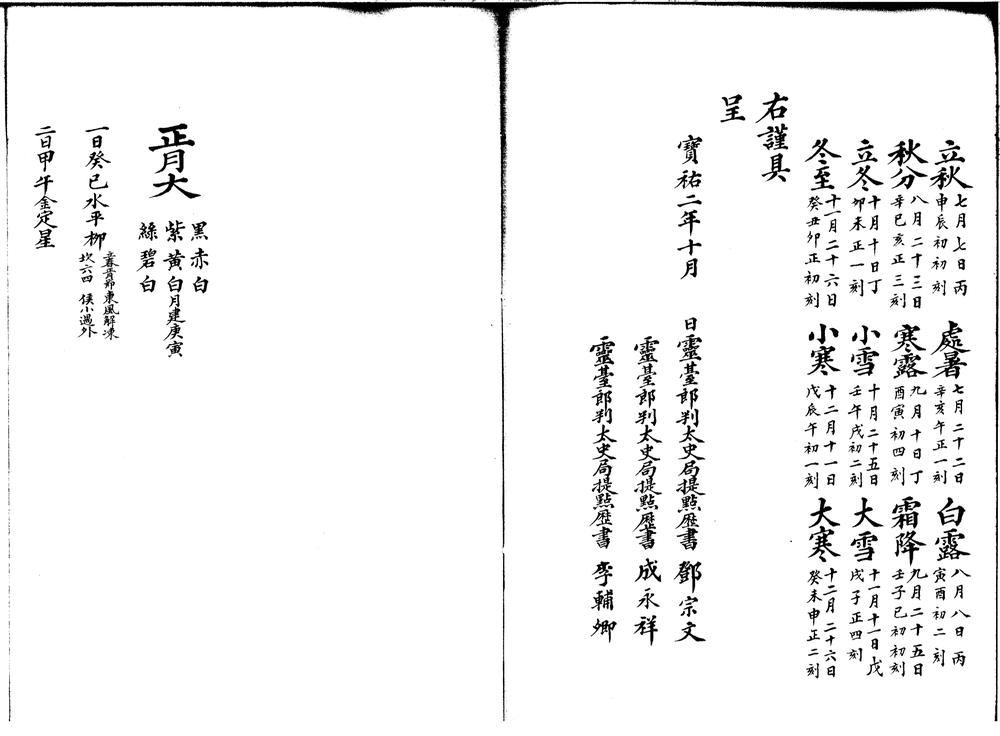 立秋 七月七日丙申辰初初刻 處暑 七月二十二日辛亥午正一刻 白露 八月八日丙寅酉初二刻
秋分 八月二十三日辛巳亥正三刻 寒露 九月十日丁酉寅初四刻 霜降 九月二十五日壬子巳初初刻
立冬 十月十日丁卯未正一刻 小雪 十月二十五日壬午戌初二刻 大雪 十一月十一日戊戌子正四刻
冬至 十一月二十六日癸丑卯正初刻 小寒 十二月十一日戊辰午初一刻 大寒 十二月二十六日癸未申正二刻
右謹具
呈
寶祐二年十月 日靈臺郎判太史局提點歷書 鄧宗文
靈臺郎判太史局提點歷書 成永祥
靈臺郎判太史局提點歷書 李輔卿
正月大
黑赤白
紫黄白月建庚寅
綠碧白
一日癸巳水平柳 立春 東風解凍
坎六四 侯小過外
二日甲午金定星